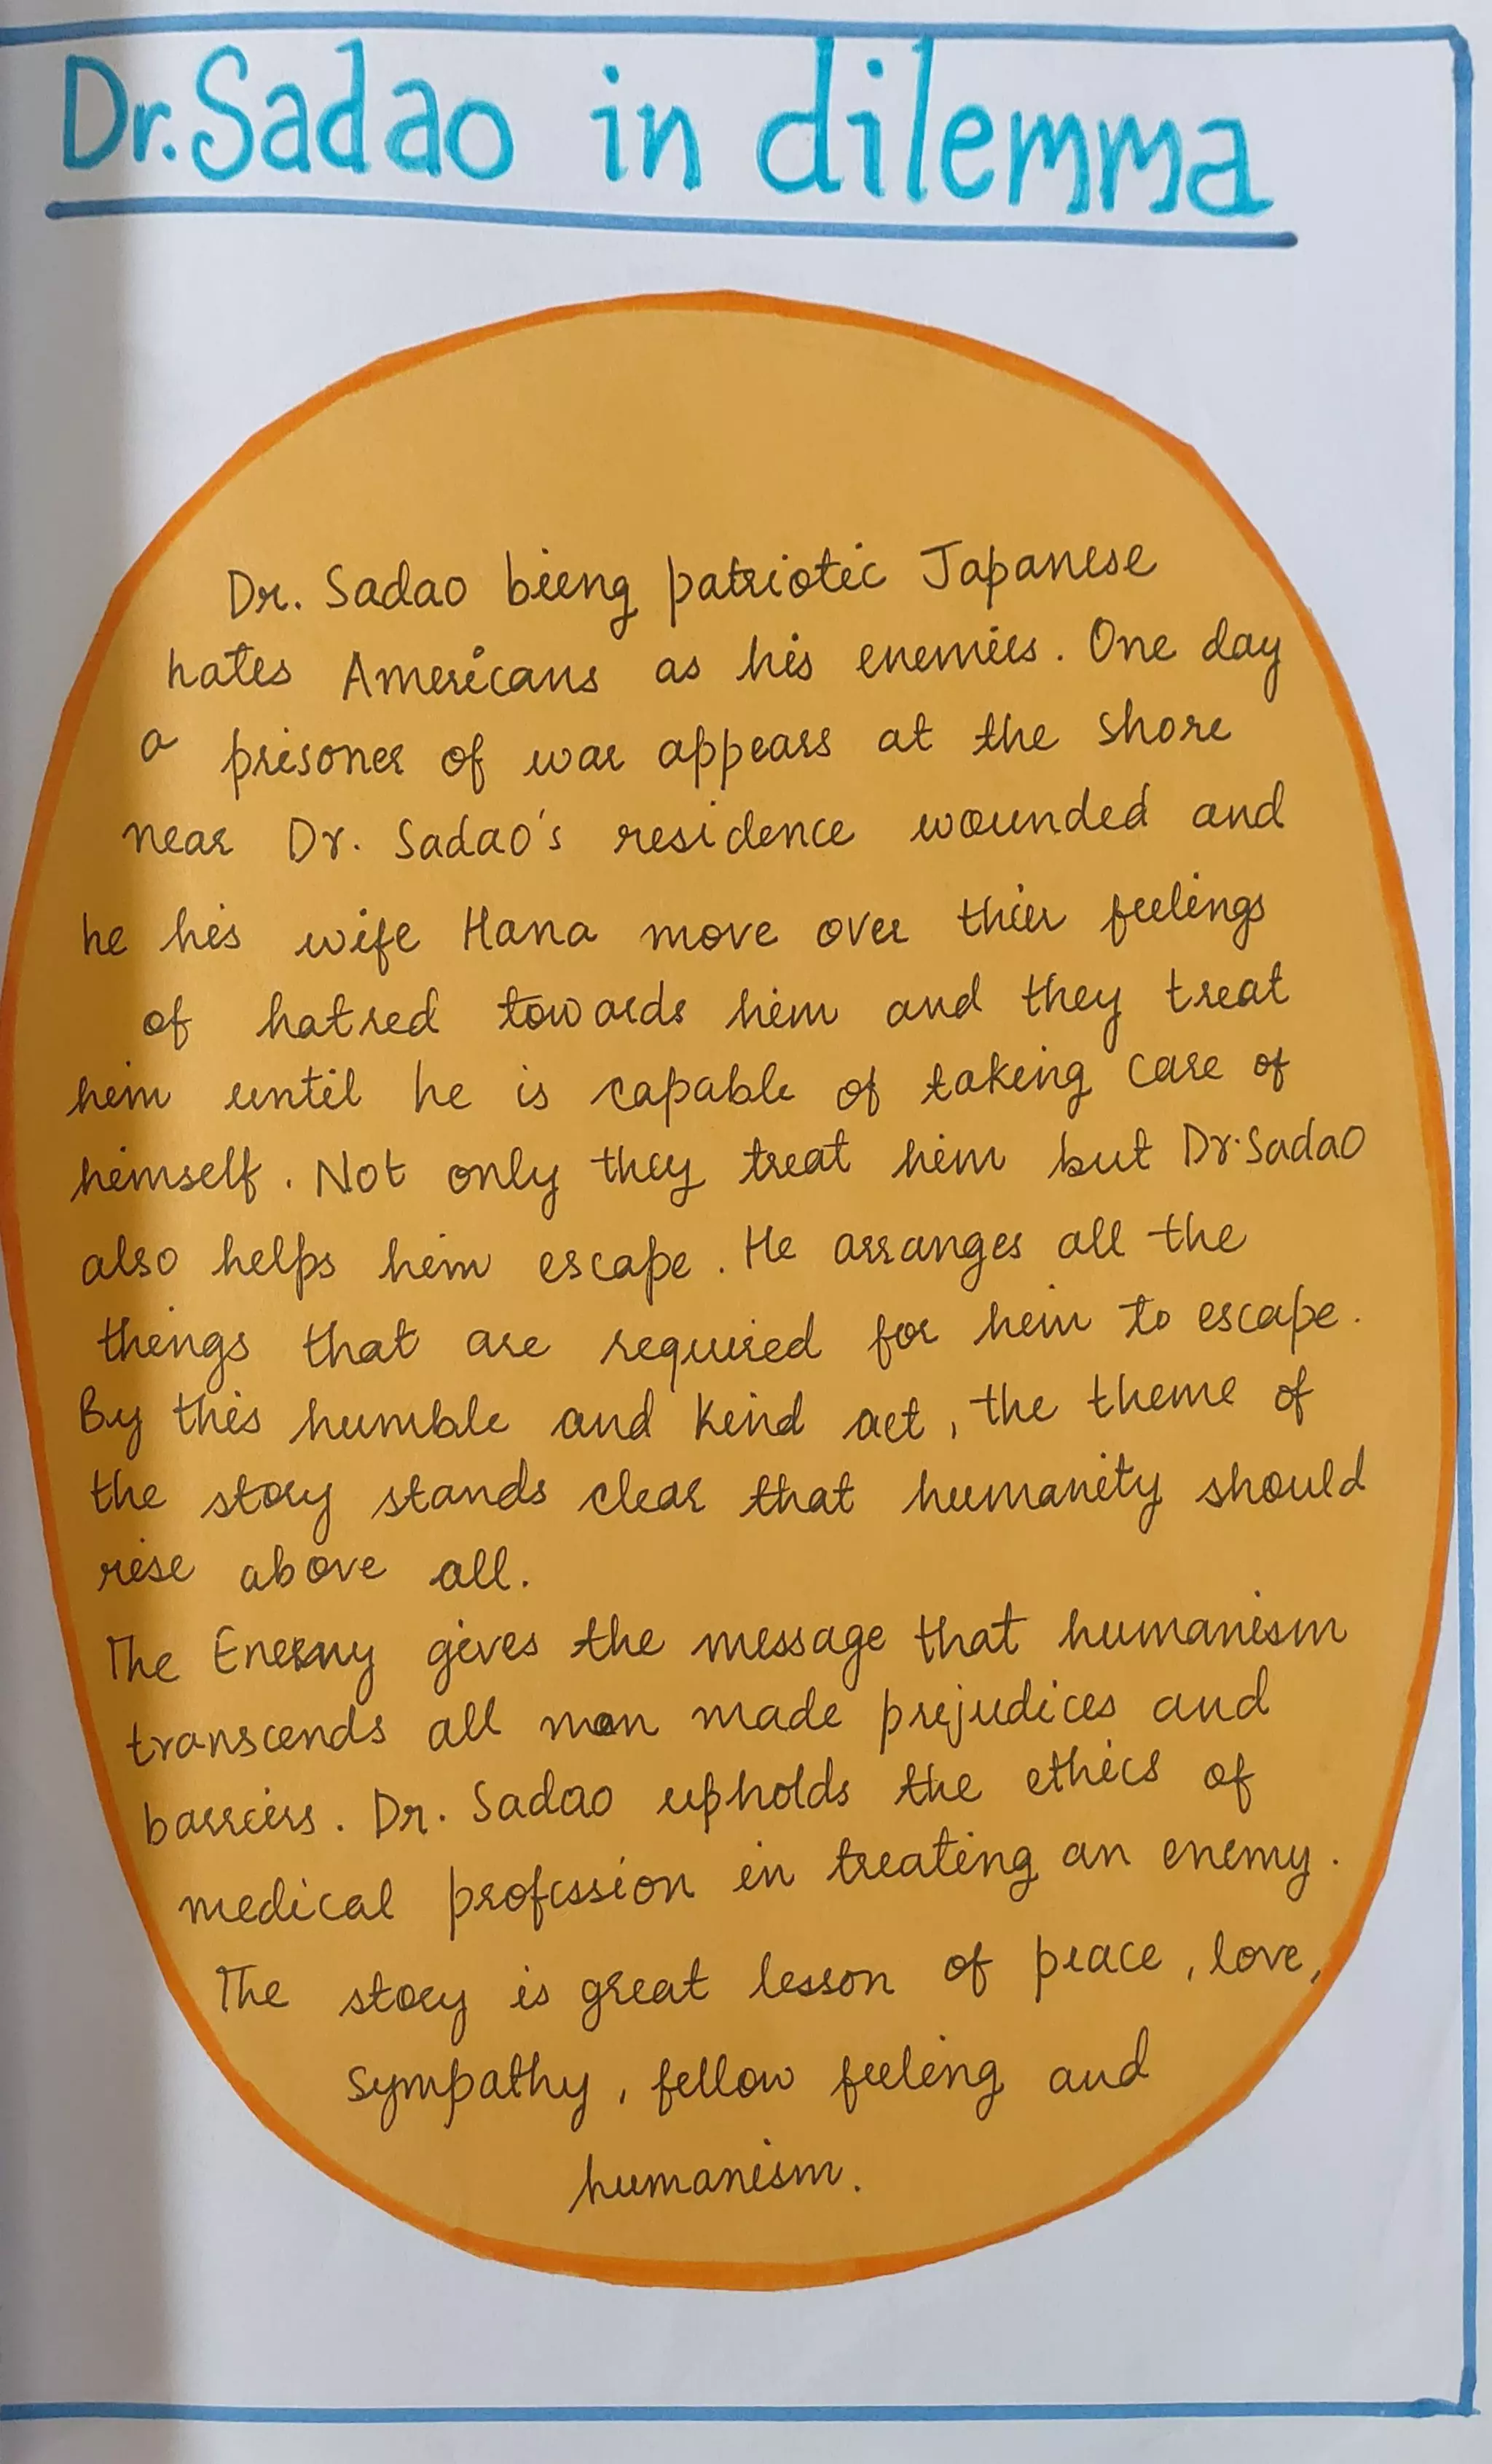 Dr. Sadao in dilemma
Dr. Sadao bieng patriotic Japanese
hates Americans as his enemies. One day
a prisoner of war appears at the shore
near Dr. Sadao's residence wounded and
he his wife Hana move over thier feelings
of hatred towards him and they treat
him until he is capable of taking care of
himself. Not only they treat him but Dr. Sadao
also helps him escape. He arranges all the
things that are required for him to escape.
By this humble and kind act, the theme of
the story stands clear that humanity should
rise above all.
The Enemy gives the message that humanism
transcends all man made prejudices and
barriers. Dr. Sadao upholds the ethics of
medical profession in treating an enemy.
The story is great lesson of peace, love,
sympathy, fellow feeling and
humanism.